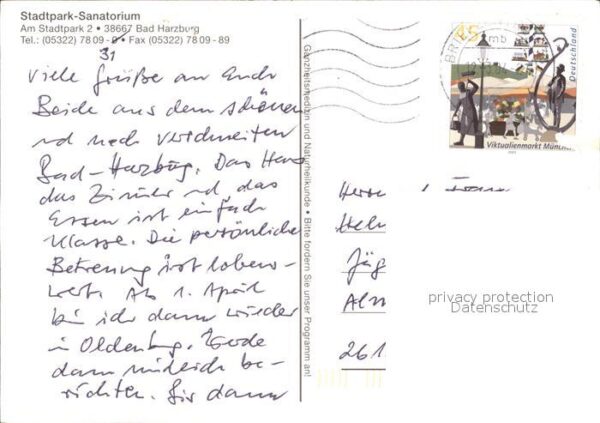 Stadtpark-Sanatorium
Am Stadtpark 2 • 38667 Bad Harzburg
Tel.: (05322) 78 09 - 0 • Fax (05322) 78 09 - 89
31
Viele Grüße an Euch
Beide aus dem schönen
und noch verschneiten
Bad-Harzburg. Das Haus
das Zimmer und das
Essen ist einfach
Klasse. Die persönliche
Betreuung ist lobens-
wert. Ab 1. April
bin ich dann wieder
in Oldenburg. Werde
dann mündlich be-
richten. Bis dann
Ganzheitsmedizin und Naturheilkunde • Bitte fordern Sie unser Programm an!
45
Deutschland
Viktualienmarkt München
BRIE
mb
Herrn + Frau
Jür
261
privacy protection
Datenschutz